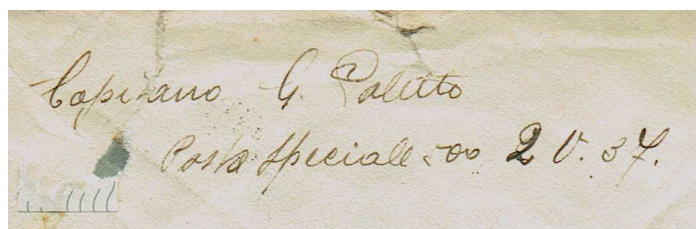 Capitano G. Poletto
Posta Speciale 500 2 V. 37.